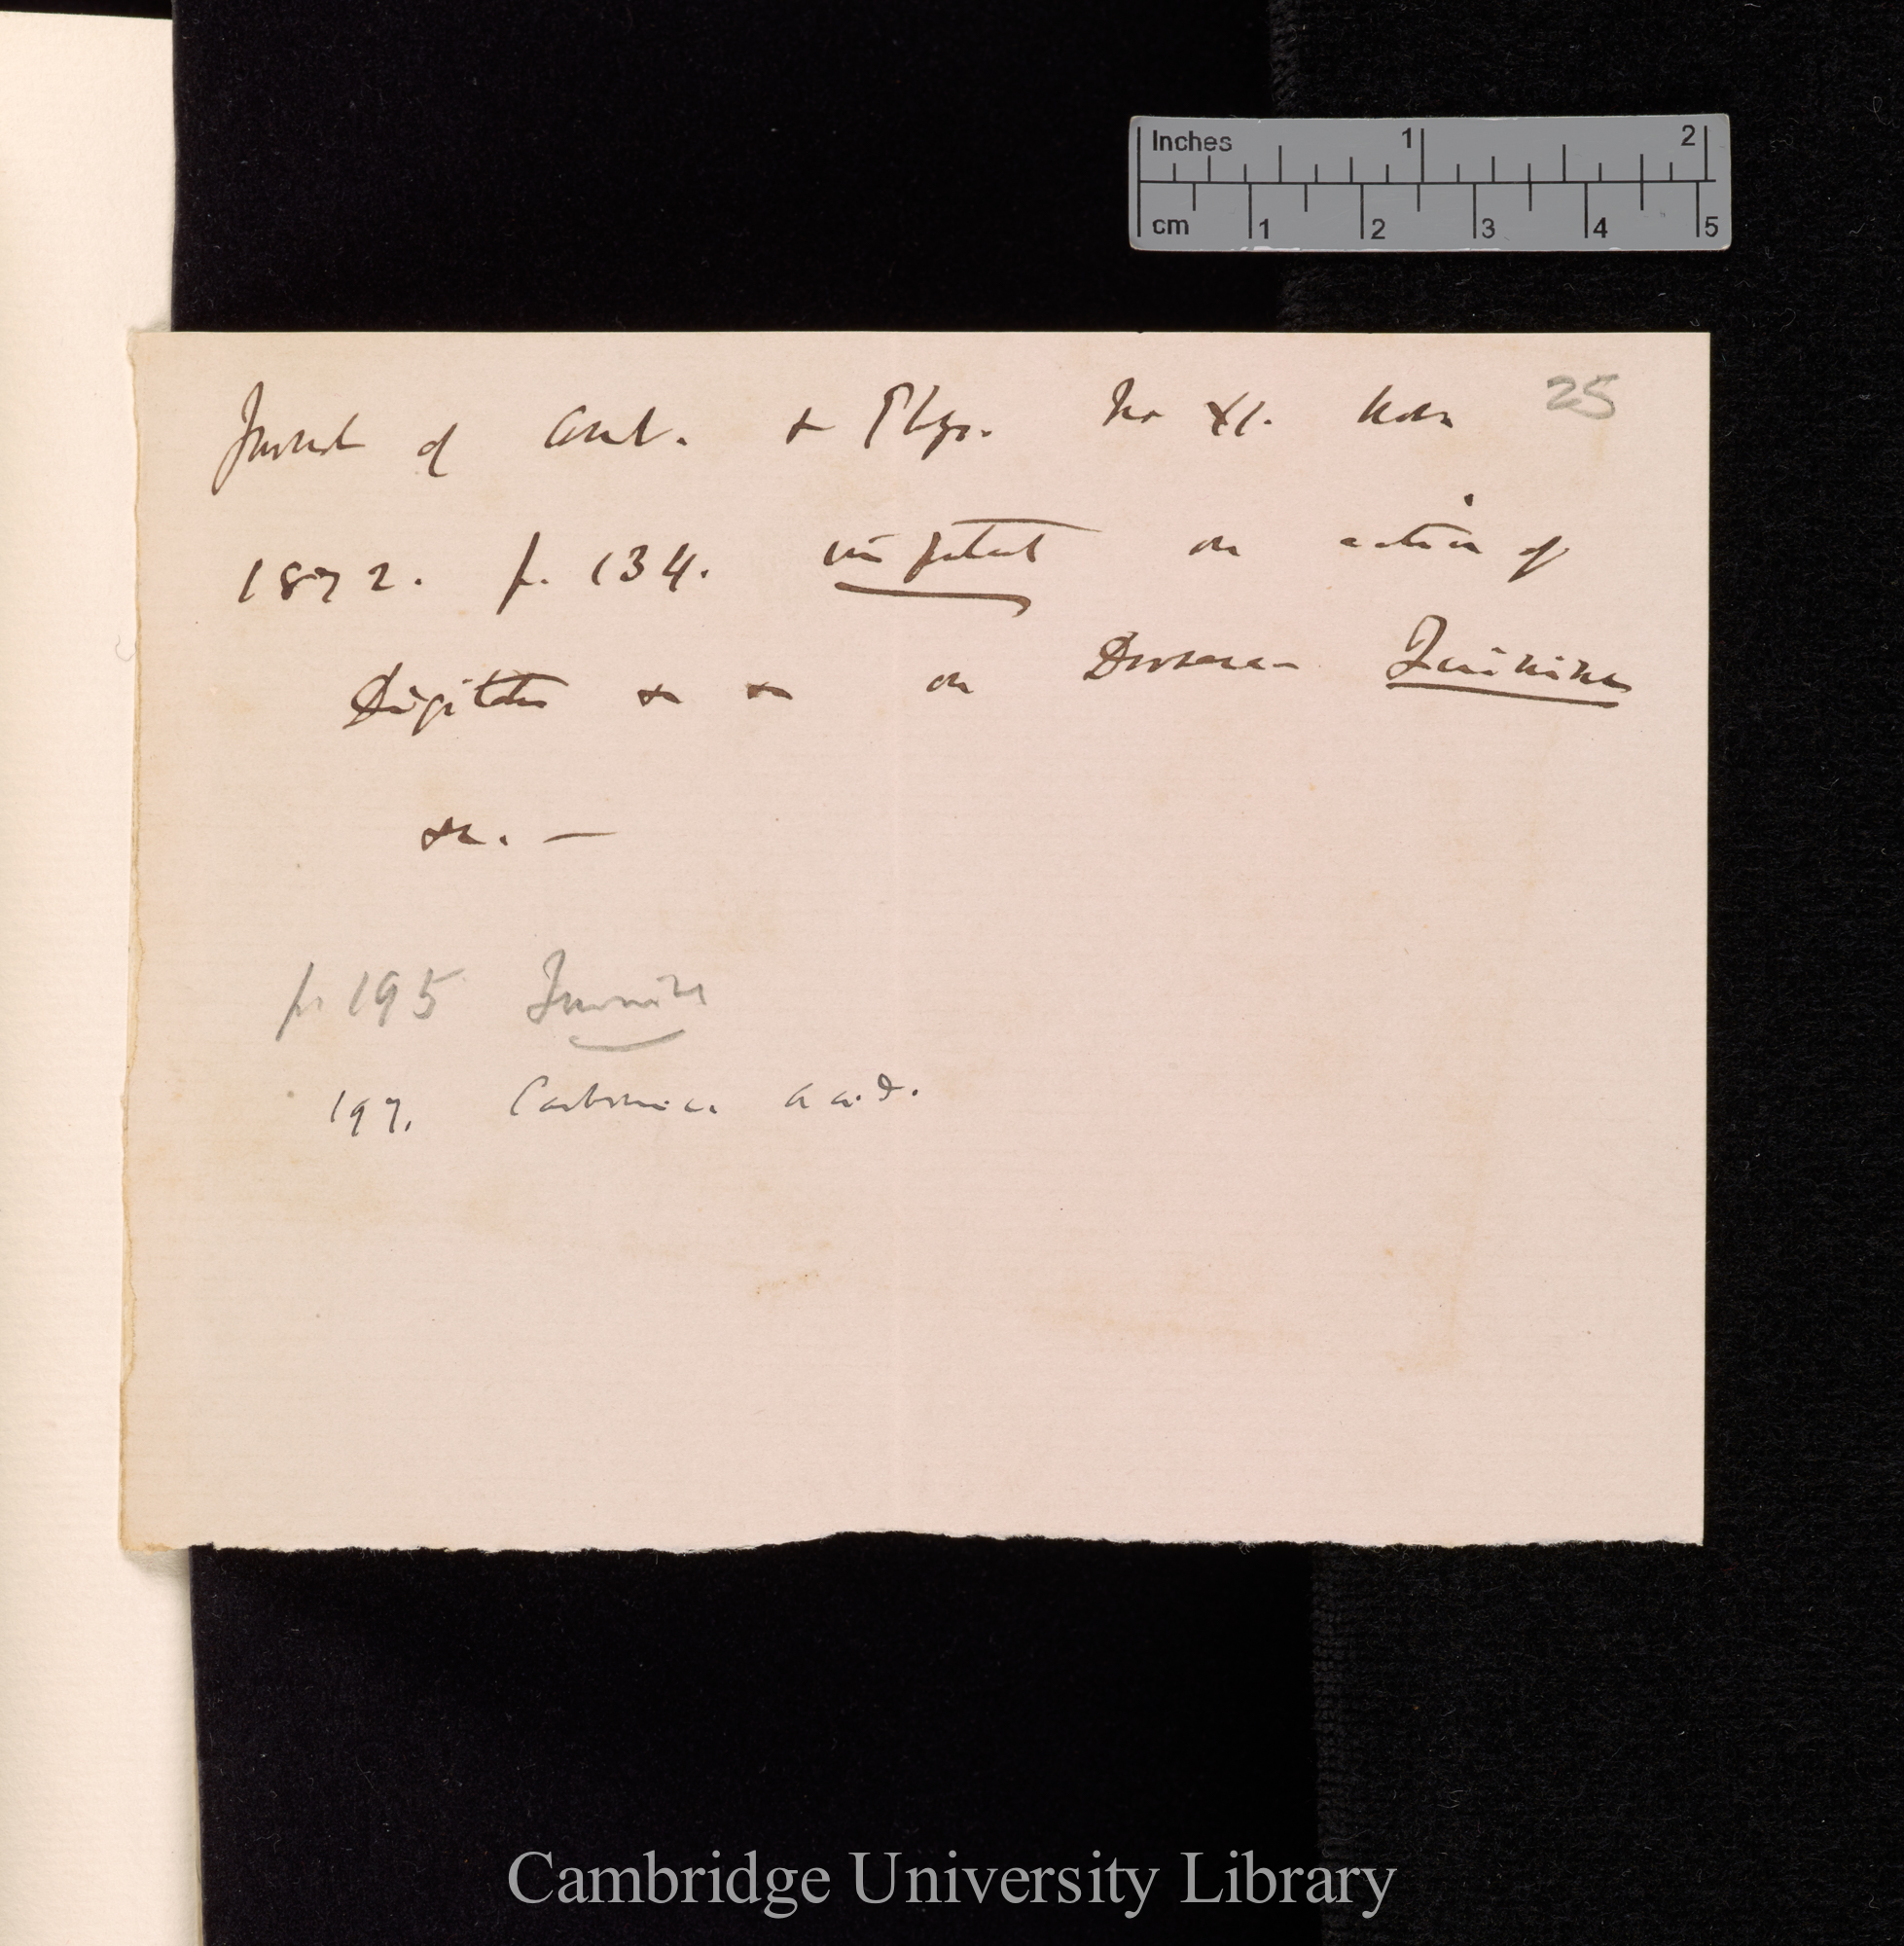 Inches 1 2
cm 1 2 3 4 5
25
Journal of Anat. & Phys. No XI. Nov.
1872. p. 134. important on action of
Digitalis &c &c on Drosera Quinine
&c. —
p. 195 Quinine
197. Carbonic acid.
Cambridge University Library